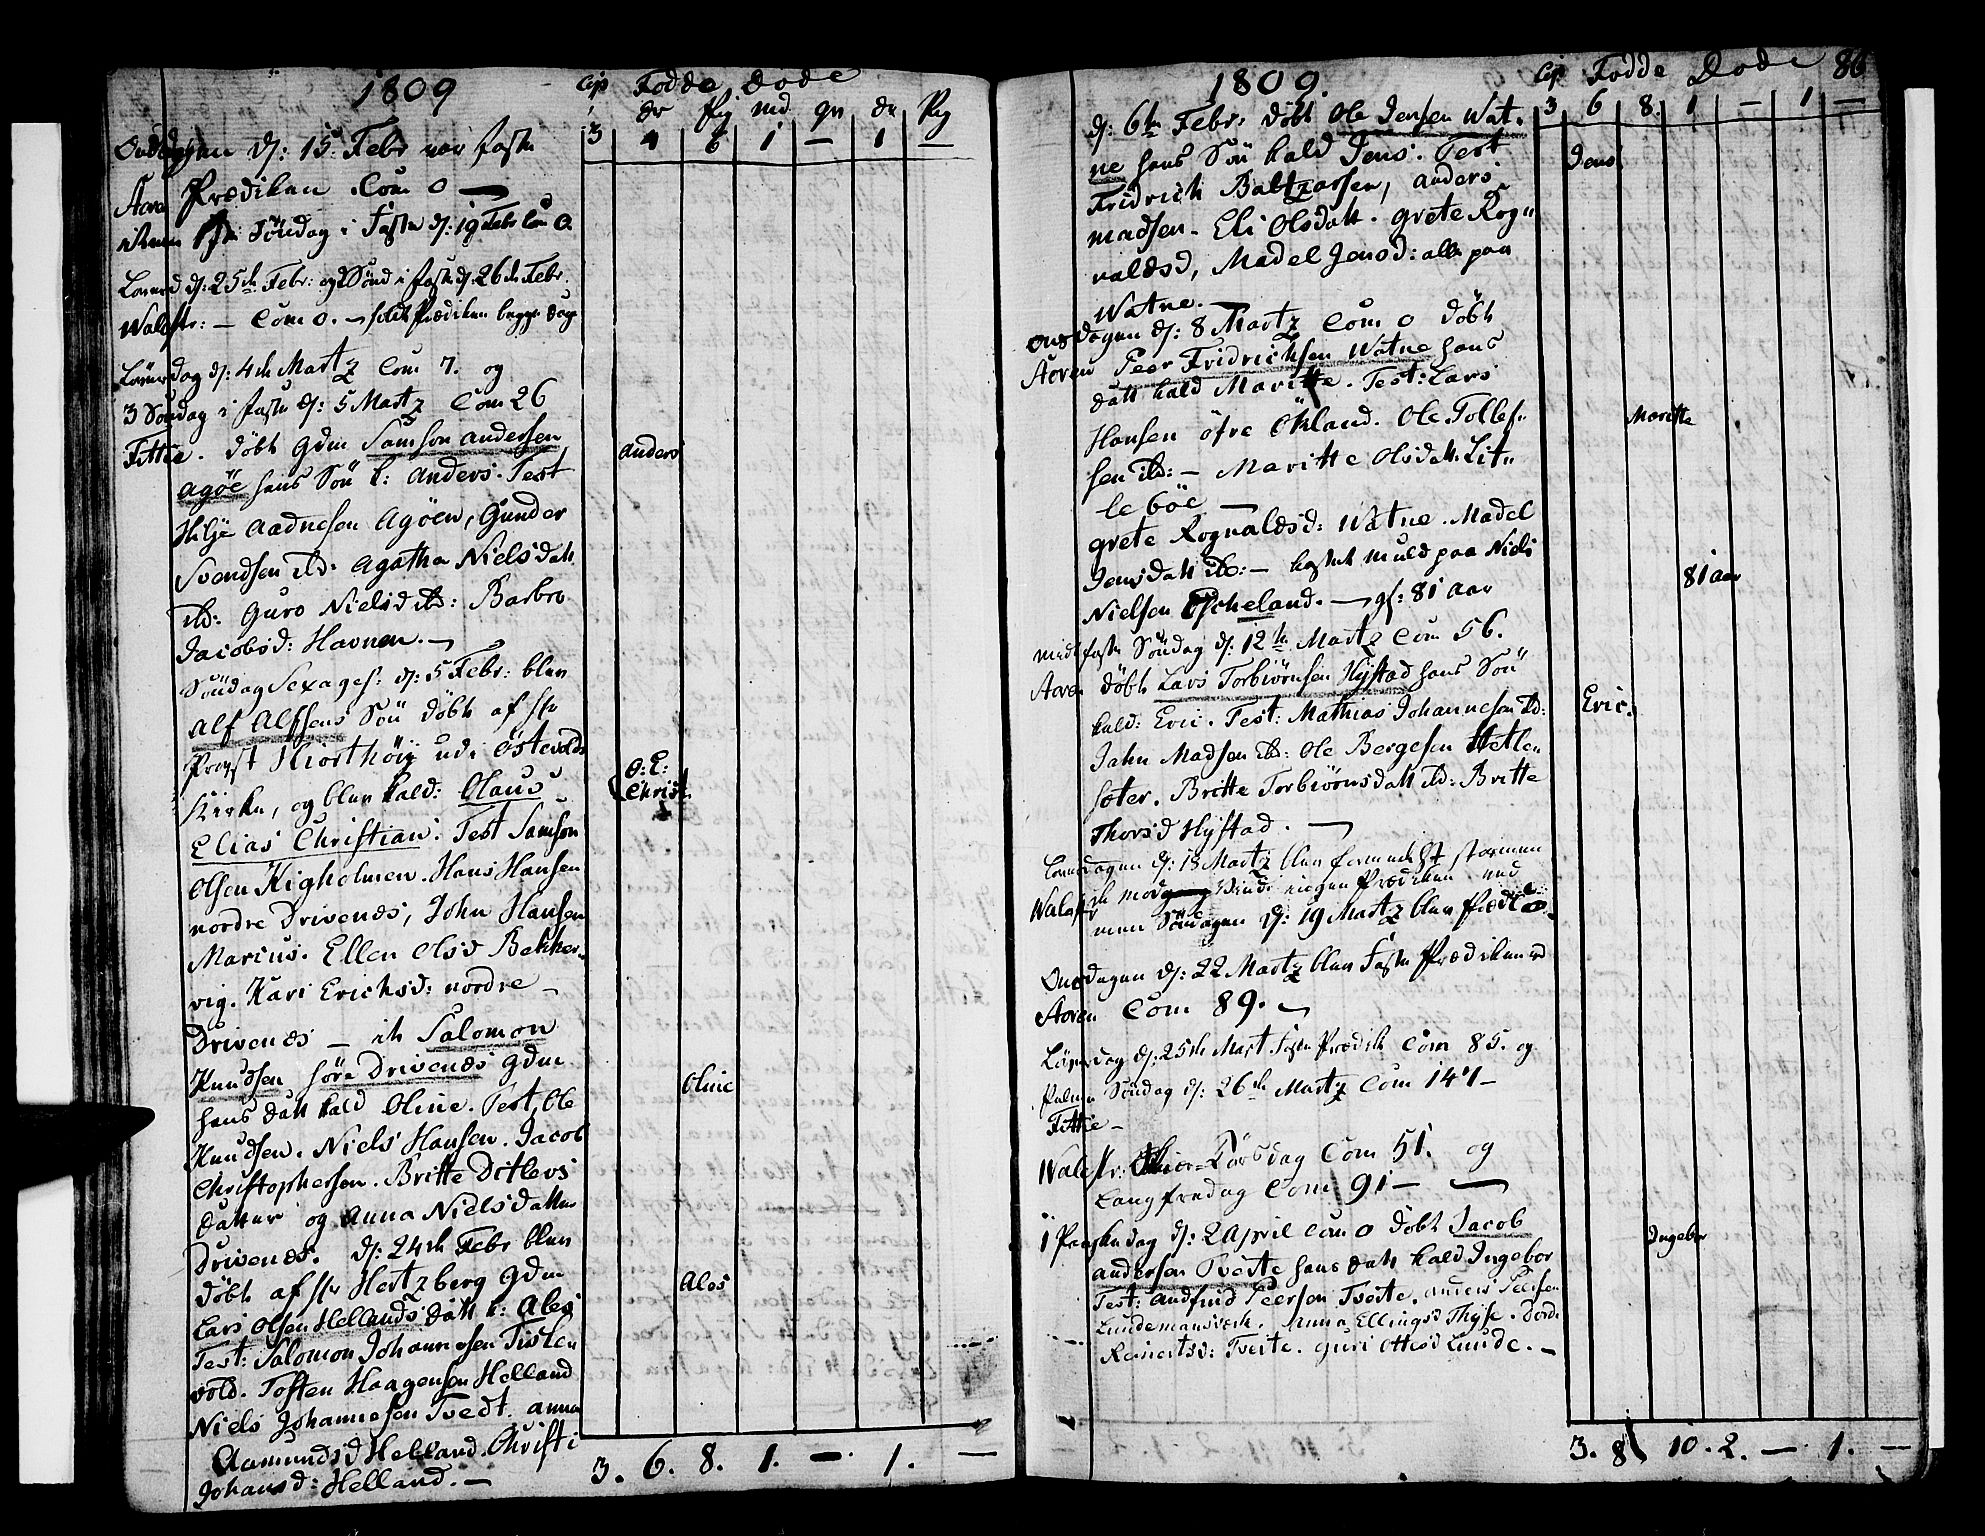 1809
Cop Fødde Døde
dr Pig md qv dr Pig
3 4 6 1 — 1 —
Onsdagen d: 15 Febr var faste
Aoren Prædiken. Com 0 —
Søndag i Faste d: 19 Febr Com 0.
Løverd d: 25de Febr: og 2 Sønd i faste d: 26de Febr.
Walestr: — Com 0. — holdt Prædiken begge dage
Løverdag d: 4de Martz Com 7. og
3 Søndag i faste d: 5 Martz Com 26
Fittie. døbt Gdm Samson Andersen
Agöe hans Søn k: Anders. Test
Hilje Aadnesen Agöen, Gunder
Svendsen ibd. Agatha Nielsdatt
ibd: Guro Nielsd ibd: Barbro
Jacobsd: Havnen. —
Anders
Søndag Sexages: d: 5 Febr: blev
Alf Alfsens Søn døbt af Hr
Provst Hiorthöy udi Östevolds
Kirke, og blev kald: Olaus
Elias Christian. Test Samson
Olsen Kigholmen. Hans Hansen
nordre Drivenes, John Hansen
Marius. Ellen Olsd Bekker-
vig. Kari Erichsd: nordre —
Drivenes — it Salomon
O: E:
Christ.
Knudsen söre Drivenes Gdm
hans Datt kald Oline. Test, Ole
Knudsen. Niels Hansen. Jacob
Christophersen. Britte Ditlevs
datter og Anna Nielsdatter
Drivenes. d: 24de Febr blev
Oline
døbt af Hr Hertzberg Gdm
Lars Olsen Hellands datt k: Ales
Test: Salomon Johannesen Tislen
vold. Tosten Haagensen Helland
Niels Johannesen Tvedt. Anna
Aamundsd Helland. Christi
Johansd: Helland. —
Ales
3. 6. 8. 1. —. 1. —
1809.
Cop Fødde Døde 86
3 6 8. 1 — 1 —
d: 6te Febr: døbt Ole Jensen Wat-
ne hans Søn kald Jens. Test
Fridrich Baltzersen, Anders
Madsen. Eli Olsdatt. Grete Rog-
valdsd, Madel Jensd: alle paa
Watne. —
Jens
Onsdagen d: 8 Martz Com 0 døbt
Aoren Peer Fridrichsen Watne hans
datt kald Maritte. Test: Lars
Hansen öfre Økland. Ole Tollef-
sen ibd: — Maritte Olsdatt Lit-
le böe —
Grete Rognaldsd: Watne. Madel
Jensdatt ibd: — kastet muld paa Niels
Nielsen Escheland. — gl: 81 Aar
Maritte
81 aar
midtfaste Søndag d: 12te Martz Com 56.
Aoren døbt Lars Torbiörnsen Hystad hans Søn
kald: Eric. Test: Mathias Johannesen ibd:
Jahn Madsen ibd: Ole Bergesen Hetle-
soter. Britte Torbiörnsdatt ibd: Britte
Thorsd Hystad. —
Eric.
Løverdagen d: 18 Martz blev formedelst stormende
Walestr Vinde ingen Prædiken. med
men Søndagen d: 19 Martz blev
Onsdagen d: 22 Martz blev Faste Prædiken ved
Aoren Com 89. —
Løverdag d: 25de Mart Faste Prædik Com 85. og
Palme Søndag d: 26de Martz Com 147 —
Fittie —
Walestr: Skier-Torsdag Com 51. og
Langfredag Com 91 — —
1 Paaskedag d: 2 April Com 0 døbt Jacob
Andersen Tveite hans datt kald Ingebor
Test: Andfind Peersen Tveite. Anders Peersen
Lundemansverk. Anna Ellingsd Thyse. Dorde
Reinertsd: Tveite. Guri Ottesd Lunde. —
Ingebor
3. 8 10. 2. — 1. —